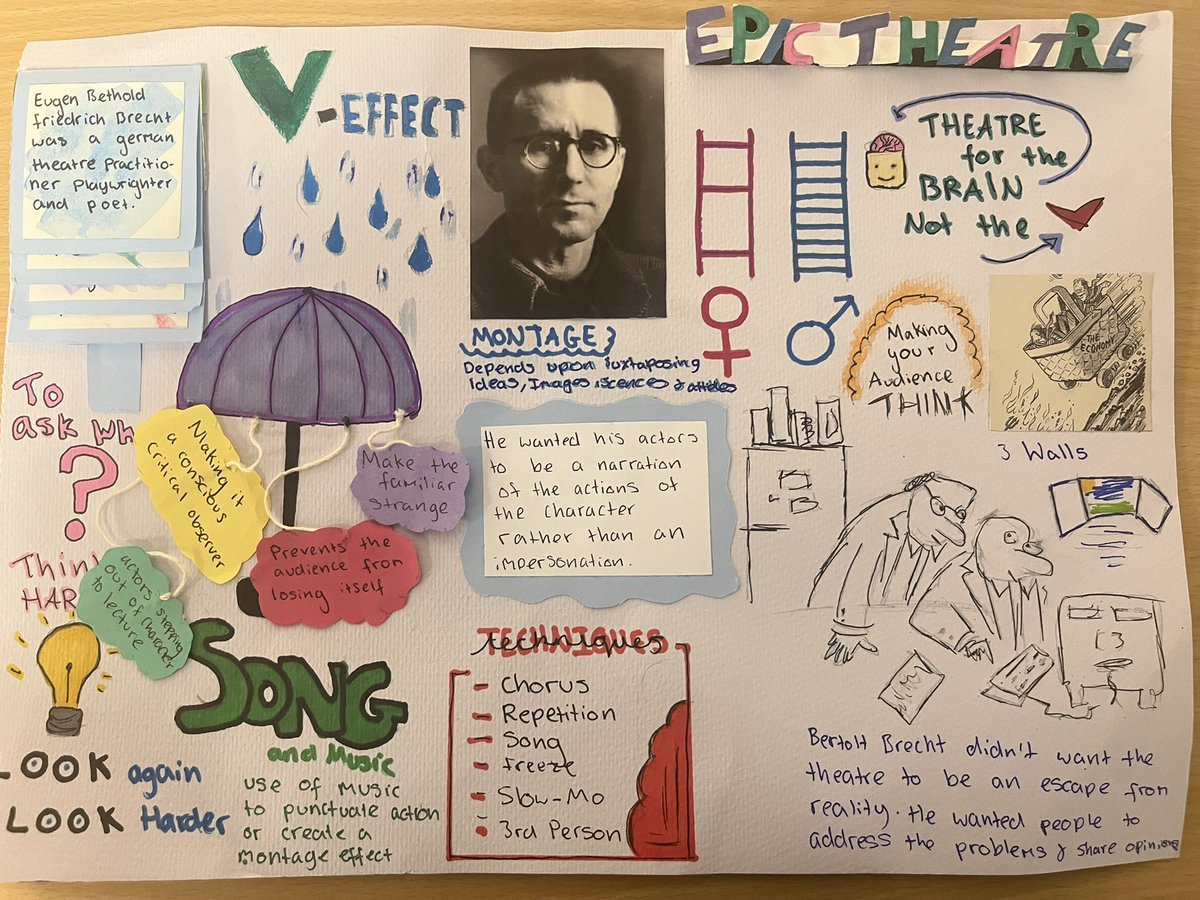 EPIC THEATRE
Eugen Bethold
friedrich Brecht
was a german
theatre Practitio-
ner Playwrighter
and poet.
V-EFFECT
THEATRE
for the
BRAIN
Not the
MONTAGE
Depends upon juxtaposing
Ideas, Images, scences &
Making
your
Audience
THINK
THE
ECONOMY
3 Walls
To
ask Wh
?
Think
HAR
Making it
a conscious
Critical observer
Make the
familiar
strange
Prevents the
audience from
losing itself
actors stepping
out of character
to lecture
He wanted his actors
to be a narration
of the actions of
the character
rather than an
impersonation.
SONG
and Music
use of music
to punctuate action
or create a
montage effect
LOOK again
LOOK Harder
techniques
- Chorus
- Repetition
- Song
- freeze
- Slow-Mo
- 3rd Person
Bertolt Brecht didn't want the
theatre to be an escape from
reality. He wanted people to
address the problems & share opinions